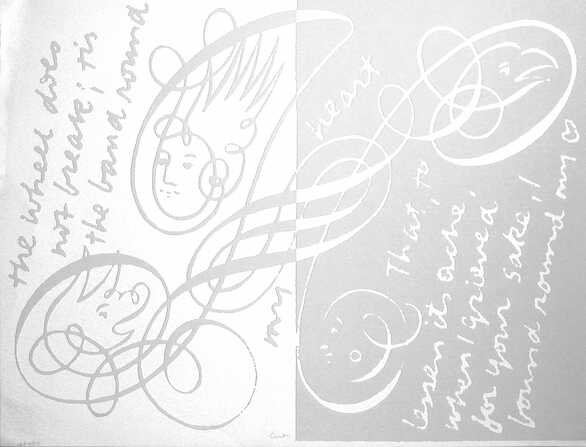 the wheel does
not break; tis
the band round
my
heart
That, to
lessen its ache,
when I grieved
for your sake, I
bound round my ♡